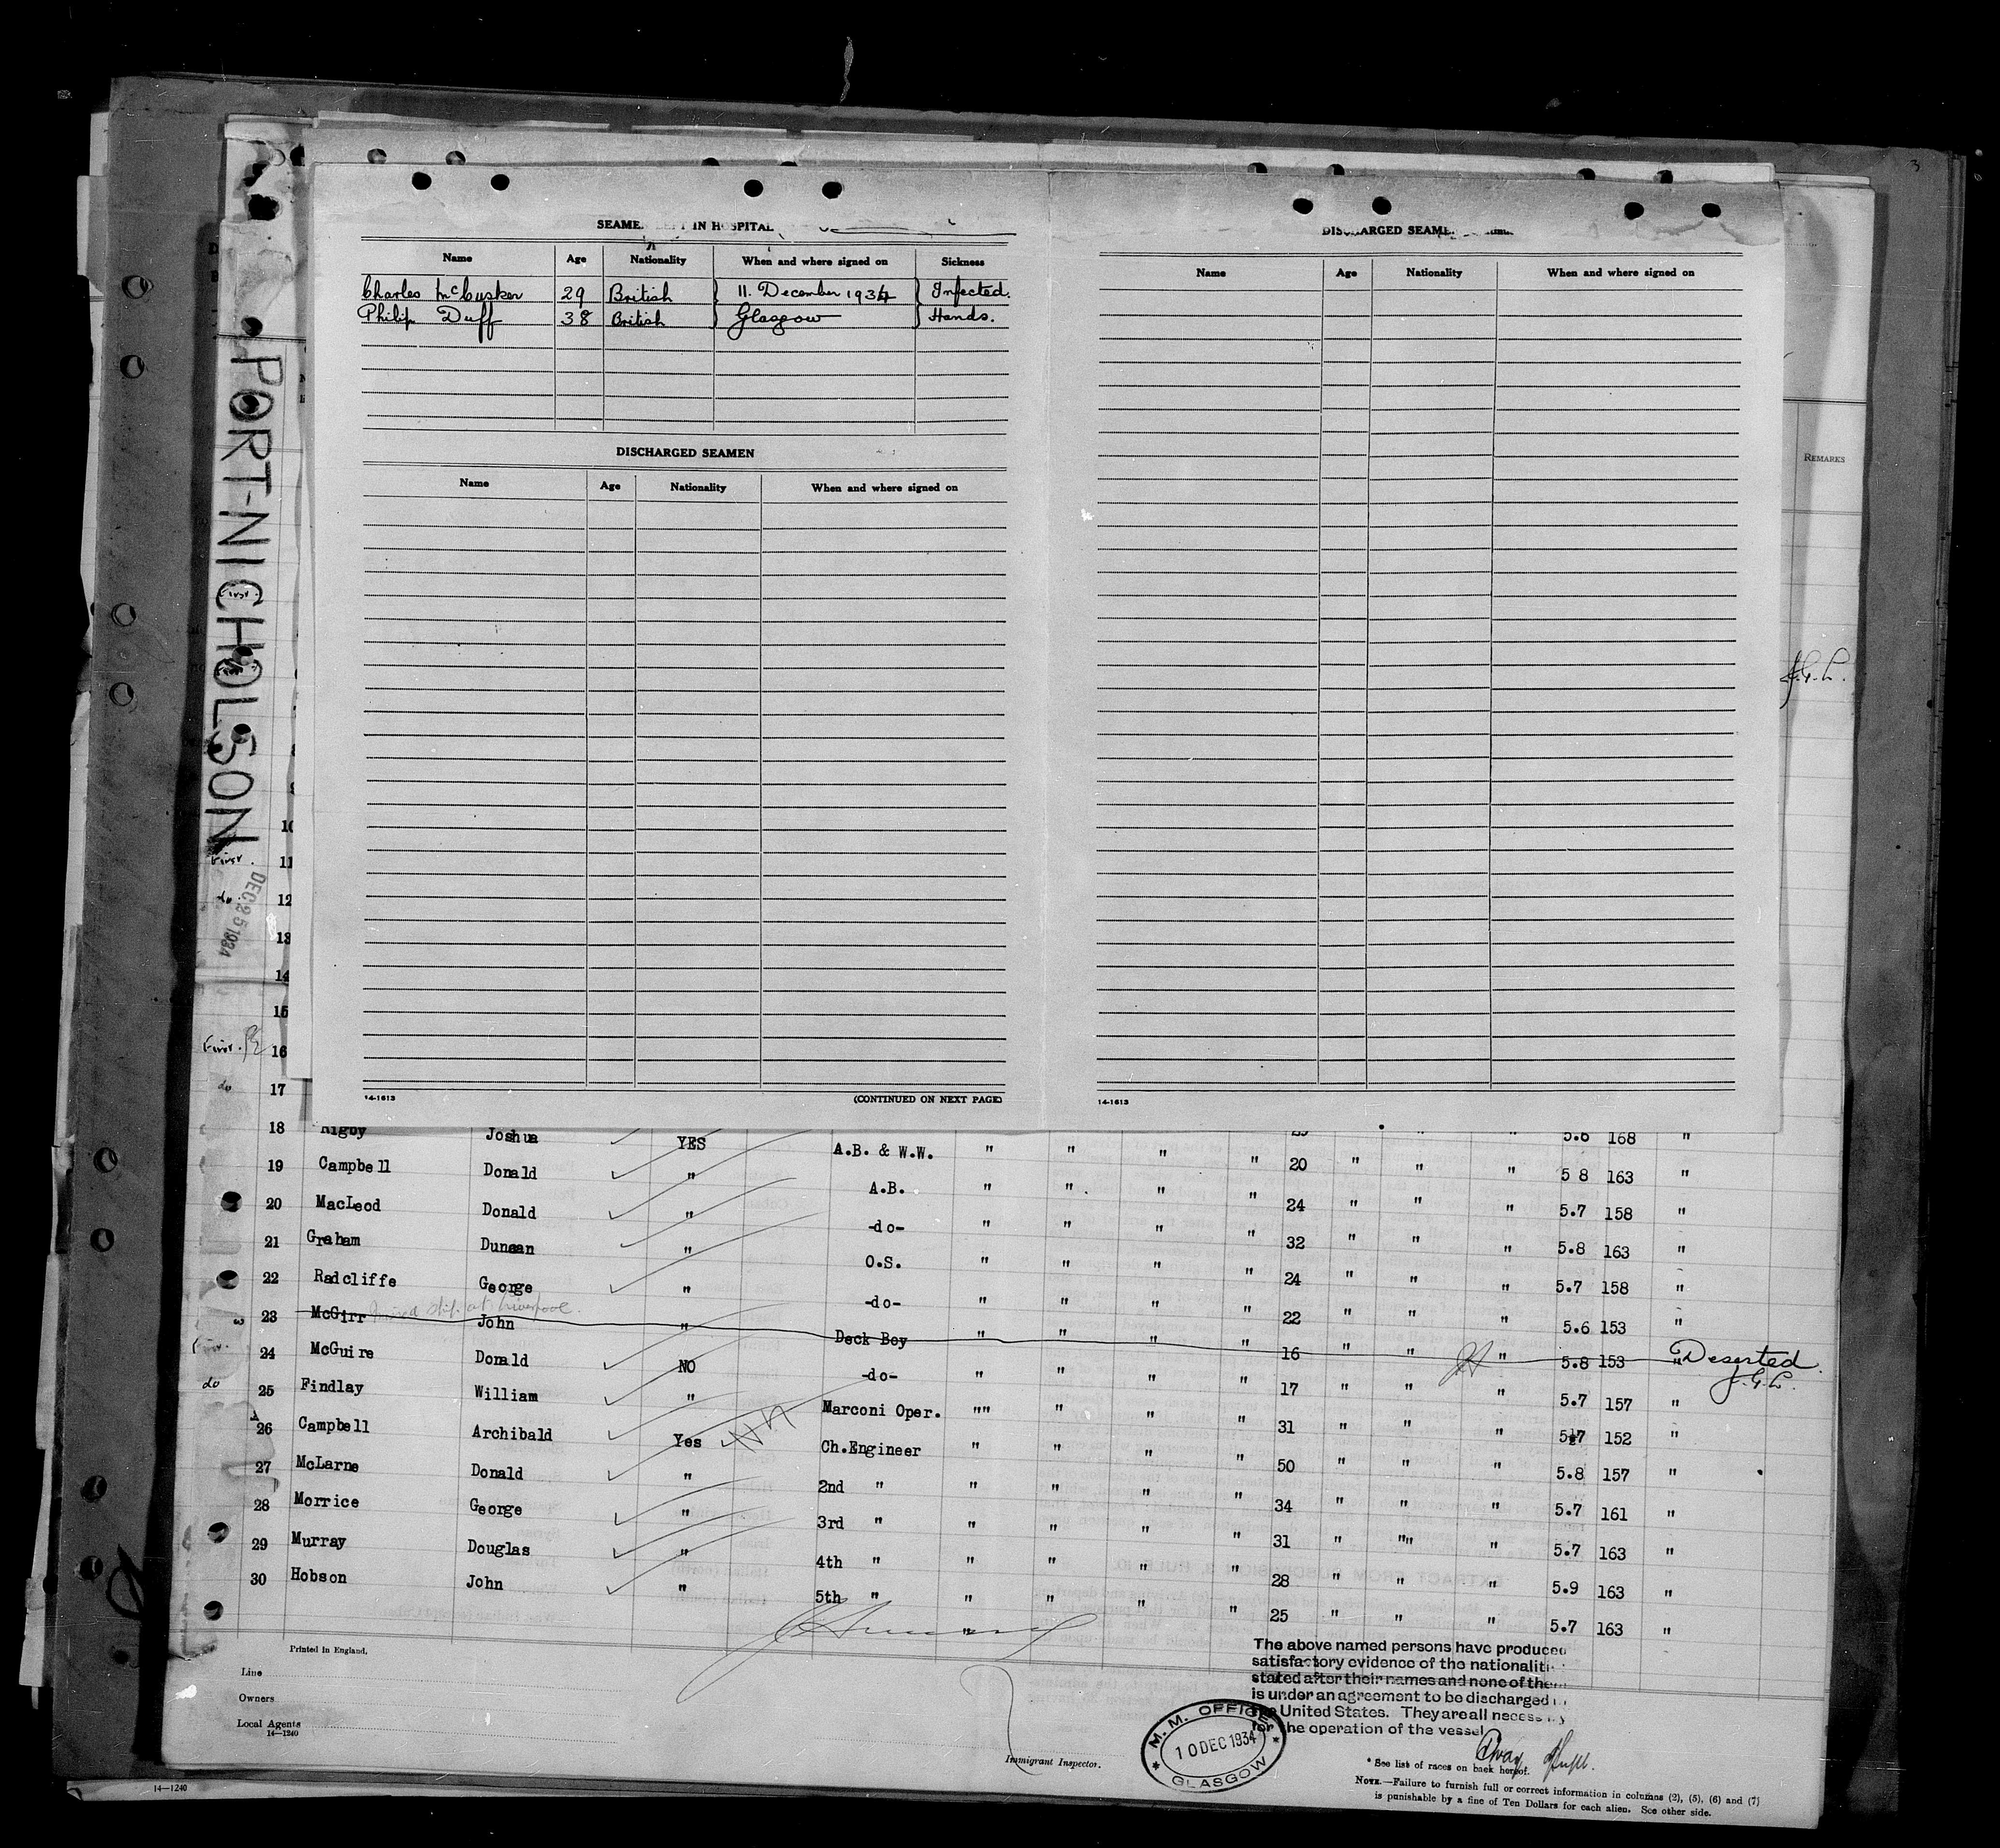 3
SEAME IN HOSPITAL
Name Age Nationality When and where signed on Sickness
Charles McCusker 29 British 11. December 1934 Infected.
Philip Duff 38 British Glasgow Hands.
DISCHARGED SEAMEN
Name Age Nationality When and where signed on
14-1613 (CONTINUED ON NEXT PAGE)
Name Age Nationality When and where signed on
14-1613
REMARKS
J.G.L.
PORT-NICHOLSON
DEC 25 1934
First.
First.
10
11
do. 12
13
14
15
First. 16
do 17
18 Rigby Joshua YES A.B. & W.W. " " " " " " " 5.6 168 "
19 Campbell Donald " A.B. " " " " 20 " " " 5 8 163 "
20 MacLeod Donald " -do- " " " " 24 " " " 5.7 158 "
21 Graham Duncan " O.S. " " " " 32 " " " 5.8 163 "
22 Radcliffe George " -do- " " " " 24 " " " 5.7 158 "
23 McGirr John " Deck Boy " " " " 22 " " " 5.6 153 "
24 McGuire Donald NO -do- " " " " 16 " " " 5.8 153 " Deserted.
J.G.L.
do 25 Findlay William " Marconi Oper. "" " " " 17 " " " 5.7 157 "
26 Campbell Archibald Yes Ch.Engineer " " " " 31 " " " 152 "
27 McLarne Donald " 2nd " " " " " 50 " " " 5.8 157 "
28 Morrice George " 3rd " " " " " 34 " " " 5.7 161 "
29 Murray Douglas " 4th " " " " " 31 " "" " 5.7 163 "
30 Hobson John " 5th " " " " " 28 " " " 5.9 163 "
" 25 " " " 5.7 163 "
Printed in England.
Line
Owners
Local Agents
14—1240
Immigrant Inspector.
M.M. OFFICE
10 DEC 1934
GLASGOW
The above named persons have produced
satisfactory evidence of the nationaliti
stated after their names and none of them
is under an agreement to be discharged in
the United States. They are all necessary
for the operation of the vessel
* See list of races on back hereof.
NOTE.—Failure to furnish full or correct information in columns (2), (5), (6) and (7)
is punishable by a fine of Ten Dollars for each alien. See other side.
14—1240